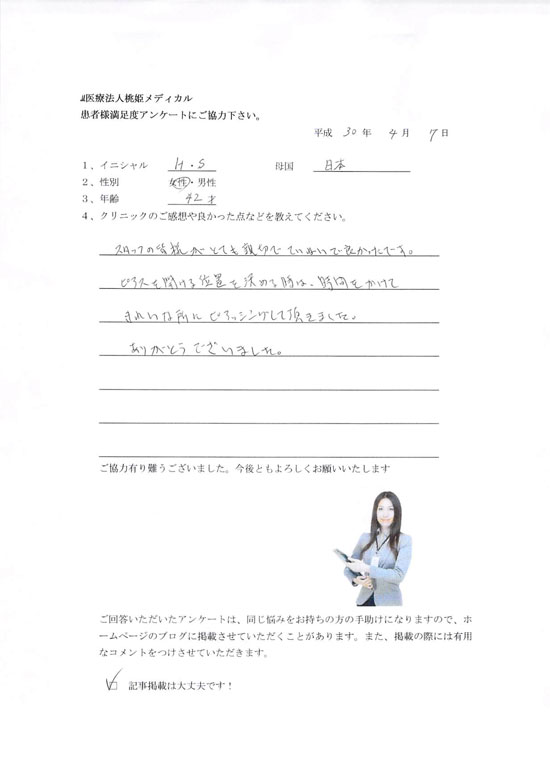 医療法人桃姫メディカル
患者様満足度アンケートにご協力下さい。
平成 30 年 4 月 7 日
1、イニシャル H・S 母国 日本
2、性別 女性・男性
3、年齢 42 才
4、クリニックのご感想や良かった点などを教えてください。
スタッフの皆様がとても親切でていねいで良かったです。
ピアスを開ける位置を決める時は、時間をかけて
きれいな所にピアッシングして頂きました。
ありがとうございました。
ご協力有り難うございました。今後ともよろしくお願いいたします
ご回答いただいたアンケートは、同じ悩みをお持ちの方の手助けになりますので、ホ
ームページのブログに掲載させていただくことがあります。また、掲載の際には有用
なコメントをつけさせていただきます。
記事掲載は大丈夫です！